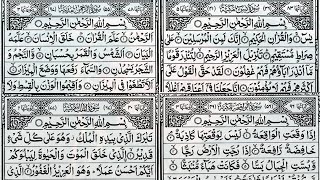 بِسْمِ اللّٰهِ الرَّحْمٰنِ الرَّحِيْمِ
يٰسٓ وَالْقُرْاٰنِ الْحَكِيْمِ اِنَّكَ لَمِنَ الْمُرْسَلِيْنَ عَلٰى
صِرَاطٍ مُّسْتَقِيْمٍ تَنْزِيْلَ الْعَزِيْزِ الرَّحِيْمِ لِتُنْذِرَ قَوْمًا مَّآ
اُنْذِرَ اٰبَآؤُهُمْ فَهُمْ غٰفِلُوْنَ لَقَدْ حَقَّ الْقَوْلُ عَلٰٓى
بِسْمِ اللّٰهِ الرَّحْمٰنِ الرَّحِيْمِ
اَلرَّحْمٰنُ عَلَّمَ الْقُرْاٰنَ خَلَقَ الْاِنْسَانَ عَلَّمَهُ
الْبَيَانَ اَلشَّمْسُ وَالْقَمَرُ بِحُسْبَانٍ وَّالنَّجْمُ وَ
الشَّجَرُ يَسْجُدٰنِ وَالسَّمَآءَ رَفَعَهَا وَوَضَعَ الْمِيْزَانَ
اَلَّا تَطْغَوْا فِى الْمِيْزَانِ وَاَقِيْمُوا الْوَزْنَ بِالْقِسْطِ وَلَا
بِسْمِ اللّٰهِ الرَّحْمٰنِ الرَّحِيْمِ
اِذَا وَقَعَتِ الْوَاقِعَةُ لَيْسَ لِوَقْعَتِهَا كَاذِبَةٌ
خَافِضَةٌ رَّافِعَةٌ اِذَا رُجَّتِ الْاَرْضُ رَجًّا
وَّبُسَّتِ الْجِبَالُ بَسًّا فَكَانَتْ هَبَآءً مُّنْۢبَثًّا
بِسْمِ اللّٰهِ الرَّحْمٰنِ الرَّحِيْمِ
تَبٰرَكَ الَّذِيْ بِيَدِهِ الْمُلْكُ وَهُوَ عَلٰى كُلِّ شَيْءٍ
قَدِيْرُ الَّذِيْ خَلَقَ الْمَوْتَ وَالْحَيٰوةَ لِيَبْلُوَكُمْ
اَيُّكُمْ اَحْسَنُ عَمَلًا وَهُوَ الْعَزِيْزُ الْغَفُوْرُ الَّذِيْ